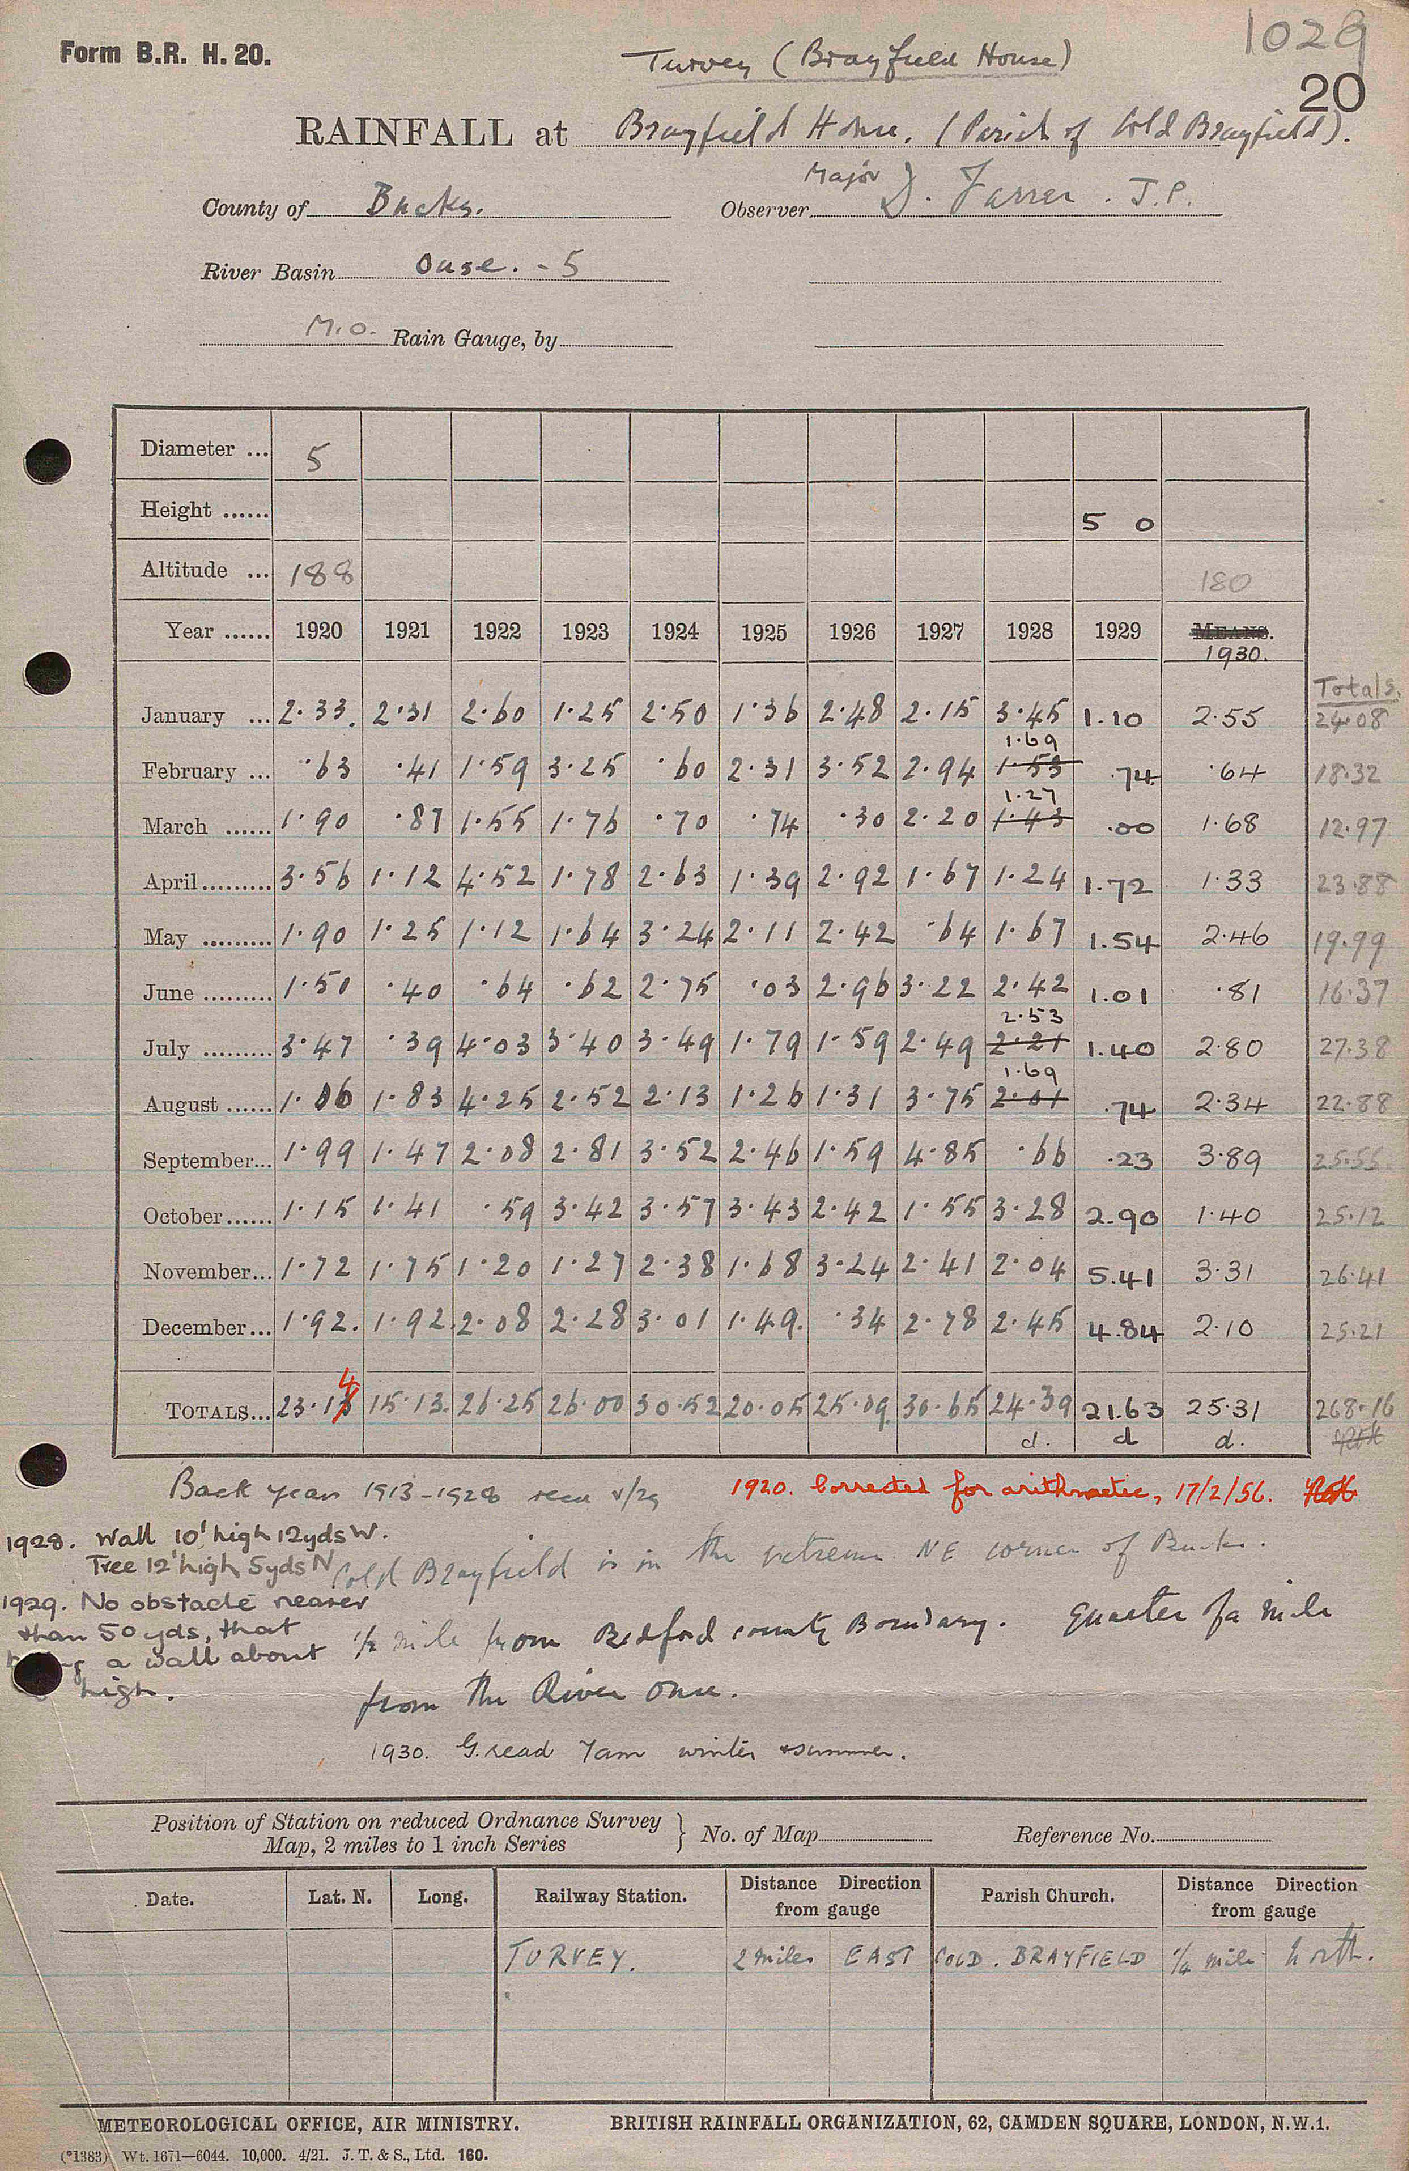 1029
Form B.R. H. 20.
Turvey (Brayfield House)
20
RAINFALL at Brayfield House. (Parish of Cold Brayfield).
County of Bucks. Observer Major D. Farrer. J.P.
River Basin Ouse. - 5
M.O. Rain Gauge, by
Diameter ... 5
Height ...... 5 0
Altitude ... 188 180
Year ...... 1920 1921 1922 1923 1924 1925 1926 1927 1928 1929 MEANS.
1930.
Totals.
January ... 2.33 2.31 2.60 1.25 2.50 1.36 2.48 2.15 3.45 1.10 2.55 24.08
1.69
February ... .63 .41 1.59 3.25 .60 2.31 3.52 2.94 1.53 .74 .64 18.32
1.27
March ...... 1.90 .87 1.55 1.76 .70 .74 .30 2.20 1.43 .00 1.68 12.97
April......... 3.56 1.12 4.52 1.78 2.63 1.39 2.92 1.67 1.24 1.72 1.33 23.88
May ......... 1.90 1.25 1.12 1.64 3.24 2.11 2.42 .64 1.67 1.54 2.46 19.99
June ......... 1.50 .40 .64 .62 2.75 .03 2.96 3.22 2.42 1.01 .81 16.37
2.53
July ......... 3.47 .39 4.03 3.40 3.49 1.79 1.59 2.49 2.21 1.40 2.80 27.38
1.69
August ...... 1.06 1.83 4.25 2.52 2.13 1.26 1.31 3.75 2.01 .74 2.34 22.88
September... 1.99 1.47 2.08 2.81 3.52 2.46 1.59 4.85 .66 .23 3.89 25.55
October...... 1.15 1.41 .59 3.42 3.57 3.43 2.42 1.55 3.28 2.90 1.40 25.12
November... 1.72 1.75 1.20 1.27 2.38 1.68 3.24 2.41 2.04 5.41 3.31 26.41
December... 1.92. 1.92 2.08 2.28 3.01 1.49. .34 2.78 2.45 4.84 2.10 25.21
4
TOTALS... 23.13 15.13. 26.25 26.00 30.52 20.05 25.09 30.65 24.39 21.63 25.31 268.16
d. d d.
Back years 1913-1928 1920. Corrected for arithmetic, 17/2/56.
1928. Wall 10' high 12yds W.
Tree 12' high 5yds N
Cold Brayfield is in the extreme NE corner of Bucks.
1929. No obstacle nearer
than 50 yds, that
1/2 mile from Bedford county Boundary. Quarter of a mile
a wall about
high.
from the River Ouse.
1930. G. read 7am winter & summer.
Position of Station on reduced Ordnance Survey
Map, 2 miles to 1 inch Series } No. of Map Reference No.
Date. Lat. N. Long. Railway Station. Distance Direction from gauge Parish Church. Distance Direction from gauge
TURVEY. 2 miles EAST COLD. BRAYFIELD 1/4 mile north.
METEOROLOGICAL OFFICE, AIR MINISTRY. BRITISH RAINFALL ORGANIZATION, 62, CAMDEN SQUARE, LONDON, N.W.1.
(*1383) Wt. 1671—6044. 10,000. 4/21. J. T. & S., Ltd. 160.